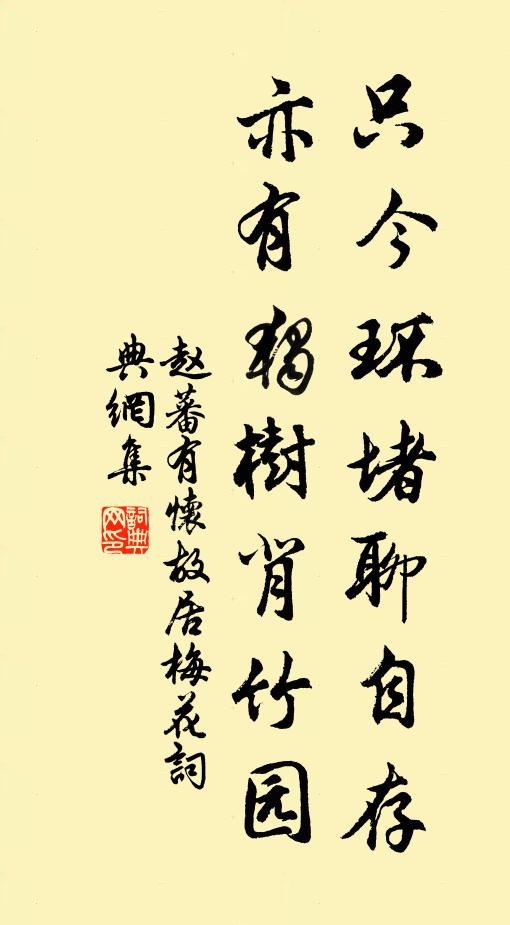 只今环堵聊自存
亦有獨樹背竹园
赵蕃有懷故居梅花詞
典網集
詞典
网印